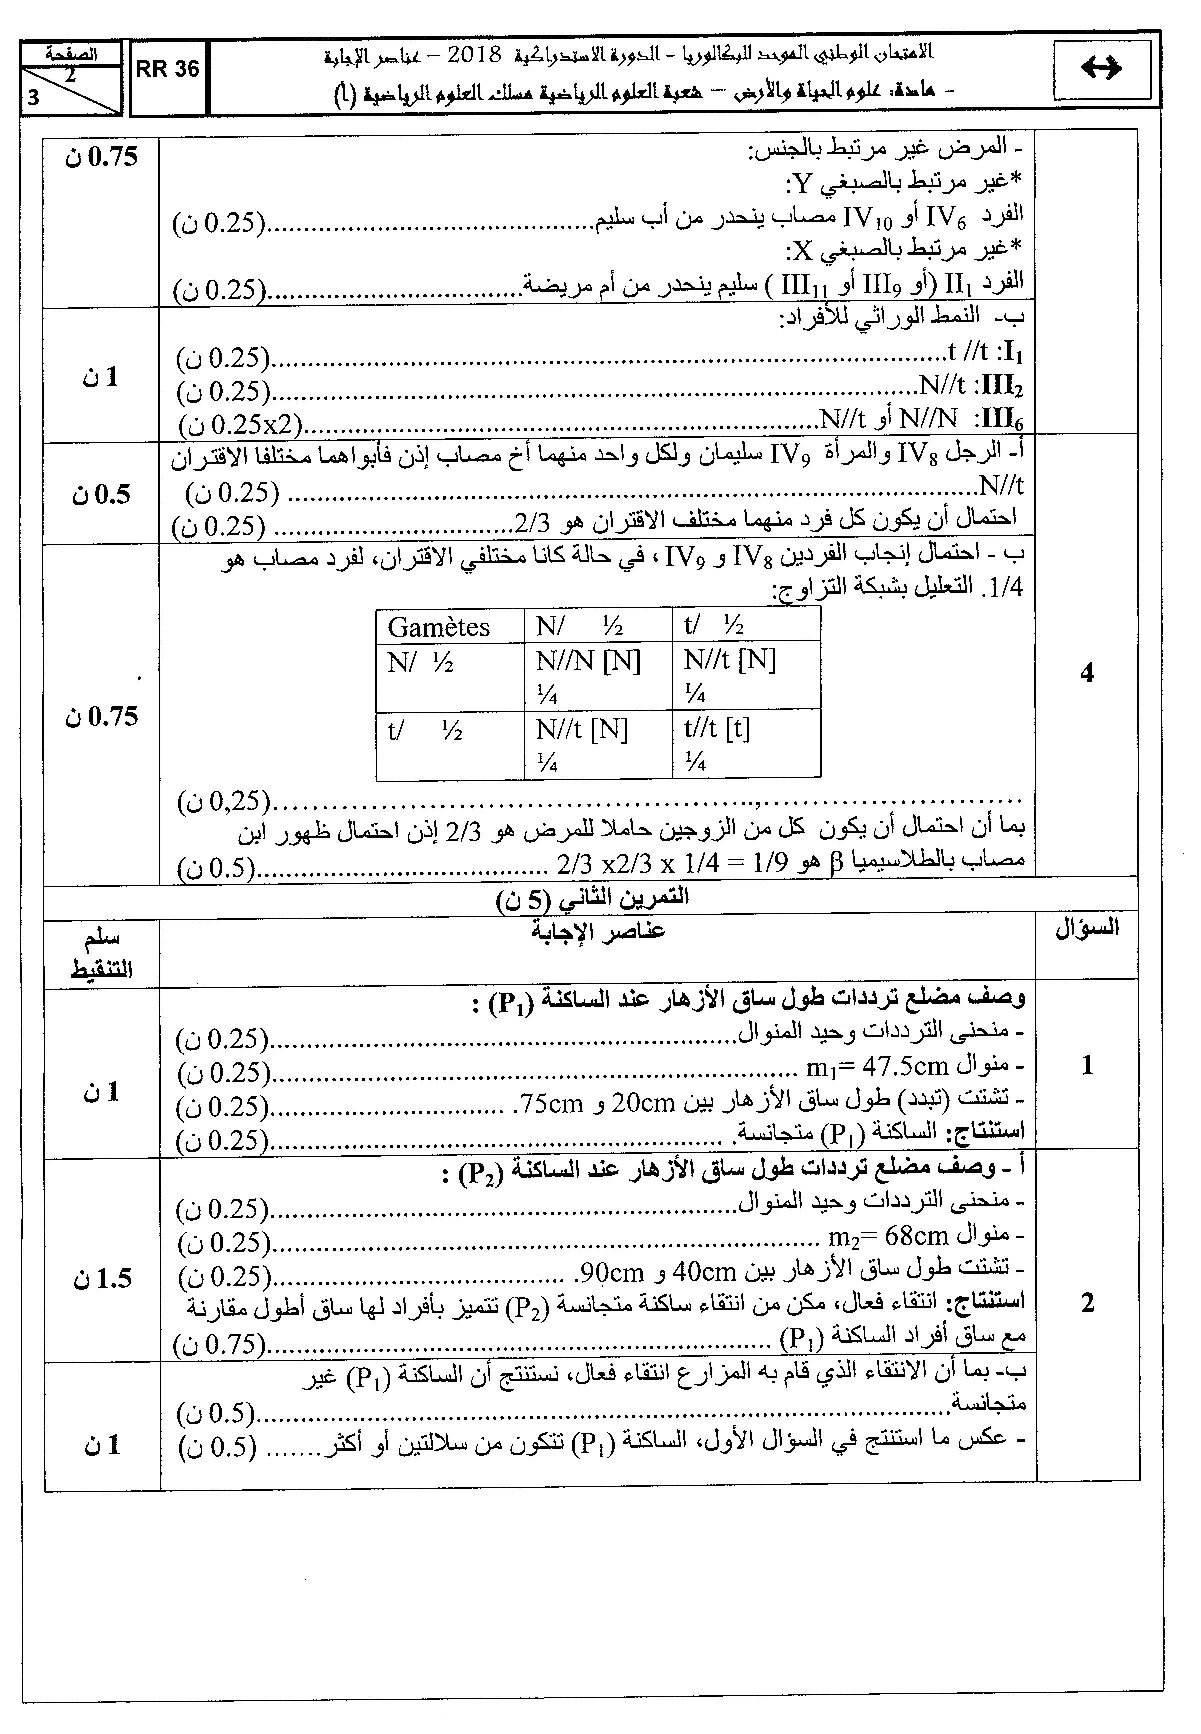 الامتحان الوطني الموحد للبكالوريا - الدورة الاستدراكية 2018 – عناصر الإجابة
- مادة: علوم الحياة والأرض – شعبة العلوم الرياضية مسلك العلوم الرياضية (أ)
RR 36
الصفحة
2
3
- المرض غير مرتبط بالجنس:
*غير مرتبط بالصبغي Y:
الفرد IV6 أو IV10 مصاب ينحدر من أب سليم............(0.25 ن)
*غير مرتبط بالصبغي X:
الفرد II1 (أو III9 أو III11 ) سليم ينحدر من أم مريضة............(0.25 ن)
0.75 ن
ب- النمط الوراثي للأفراد:
I1: t //t............(0.25 ن)
III2: N//t............(0.25 ن)
III6: N//N أو N//t............(0.25x2 ن)
1 ن
4
أ- الرجل IV8 والمرأة IV9 سليمان ولكل واحد منهما أخ مصاب إذن فأبواهما مختلفا الاقتران
N//t............ (0.25 ن)
احتمال أن يكون كل فرد منهما مختلف الاقتران هو 2/3............ (0.25 ن)
0.5 ن
ب - احتمال إنجاب الفردين IV8 و IV9 ، في حالة كانا مختلفي الاقتران، لفرد مصاب هو
1/4. التعليل بشبكة التزاوج:
Gamètes N/ ½ t/ ½
N/ ½ N//N [N] ¼ N//t [N] ¼
t/ ½ N//t [N] ¼ t//t [t] ¼
............(0,25 ن)
بما أن احتمال أن يكون كل من الزوجين حاملا للمرض هو 2/3 إذن احتمال ظهور ابن
مصاب بالطلاسيميا β هو 2/3 x2/3 x 1/4 = 1/9 ............(0.5 ن)
0.75 ن
التمرين الثاني (5 ن)
السؤال
عناصر الإجابة
سلم التنقيط
1
وصف مضلع ترددات طول ساق الأزهار عند الساكنة (P1) :
- منحنى الترددات وحيد المنوال............(0.25 ن)
- منوال m1= 47.5cm ............(0.25 ن)
- تشتت (تبدد) طول ساق الأزهار بين 20cm و 75cm. ............(0.25 ن)
استنتاج: الساكنة (P1) متجانسة. ............(0.25 ن)
1 ن
2
أ - وصف مضلع ترددات طول ساق الأزهار عند الساكنة (P2) :
- منحنى الترددات وحيد المنوال............(0.25 ن)
- منوال m2= 68cm ............(0.25 ن)
- تشتت طول ساق الأزهار بين 40cm و 90cm. ............(0.25 ن)
استنتاج: انتقاء فعال، مكن من انتقاء ساكنة متجانسة (P2) تتميز بأفراد لها ساق أطول مقارنة
مع ساق أفراد الساكنة (P1) ............(0.75 ن)
1.5 ن
ب- بما أن الانتقاء الذي قام به المزارع انتقاء فعال، نستنتج أن الساكنة (P1) غير
متجانسة............(0.5 ن)
- عكس ما استنتج في السؤال الأول، الساكنة (P1) تتكون من سلالتين أو أكثر....... (0.5 ن)
1 ن